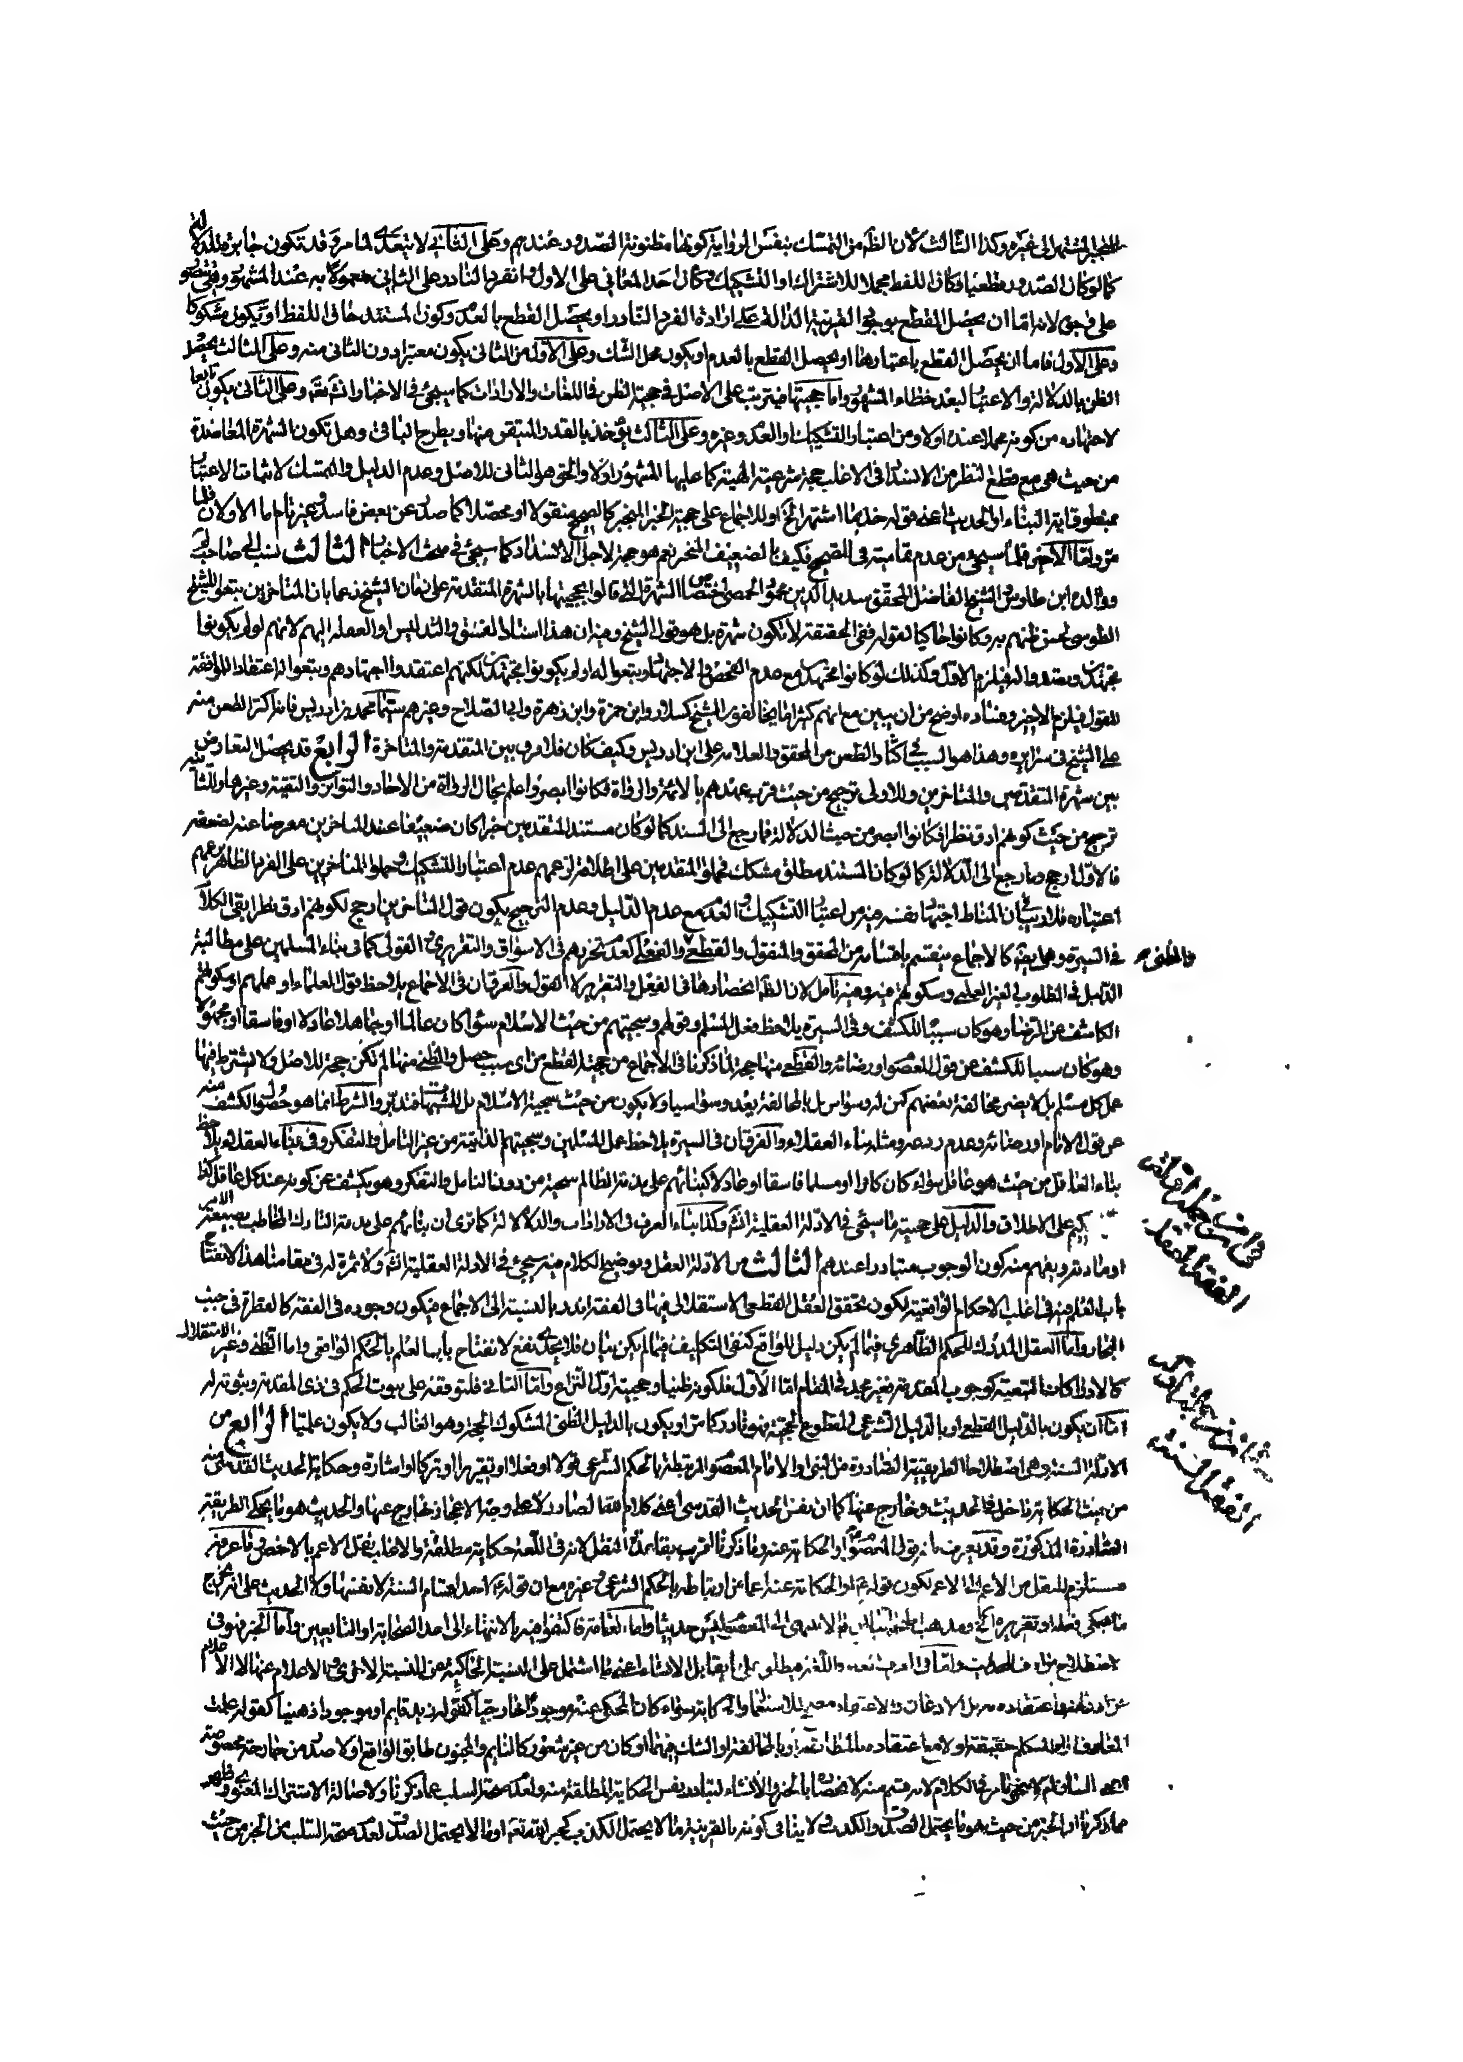 المشتهر الى غيره وكذا الثالث لان الظ من التمسك بنفس الرواية كونها مظنونة الصدور عندهم وعلى الثاني لا يتعدى لما مر وقد تكون جابرة
كما لو كان الصدور قطعيا وكان اللفظ مجملا للاشتراك او التشكيك وكان احد المعاني على الاول وانفراد النادر على الثاني معمولا به عند المشهور
على فرض لانه اما ان يحصل القطع بوجود القرينة الدالة على ارادة الفرد النادر او يحصل القطع بالعدم وكون المستند خا في اللفظ او يكون مشكوكا
وعلى الاول فاما ان يحصل القطع باعتبارها او يحصل القطع بالعدم او يكون محل الشك وعلى الاول من الثاني يكون معتبرا دون الثاني منه وعلى الثالث يحصل
الظن بالدلالة والاعتبار لبعد خطاء المشهور واما حجيتها فيترتب على الاصل في حجية الظن في اللغات والارادات كما سيجئ في الاخبار انش تعه وعلى الثاني يكون تابعا
لاجتهاده من كونه مجملا عنده اولا ومن اعتبار التشكيك او العدم وغيره وعلى الثالث يؤخذ بالقدر المتيقن منها ويطرح الباقي وهل تكون الشهرة المعاضدة
من حيث هي مع قطع النظر من الانسداد في الاغلب حجة شرعية الهية كما عليها المشهور اولا والحق هو الثاني للاصل وعدم الدليل والتمسك لاثبات الاعتبار
بمنطوق اية البناء او الحديث اعني قوله خذ بما اشتهر الخ او للاجماع على حجية الخبر المنجبر كالصحيح منقولا او محصلا كما صدر عن بعض فاسد وغير تام اما الاولان فلما
مر واما الاخير فلما سيجئ من عدم تمامية في الصحيح فكيف بالضعيف المنجبر نعم هو حجة لاجل الانسداد كما سيجئ في مبحث الاخبار الثالث نسب الى صاحب لم
ووالده ابن طاوس والشيخ الفاضل المحقق سديد الدين محمود الحمصي اختصاص الشهرة التي قالوا بحجيتها بالشهرة المتقدمة على زمان الشيخ زعما بان المتاخرين تبعوا للشيخ
الطوسي لحسن ظنهم به وكانوا حاكيا لقوله ففي الحقيقة لا تكون شهرة بل هو قول الشيخ وفيه ان هذا اسناد الفسق والتدليس او الغفلة اليهم لانهم لو لم يكونوا
مجتهدين وقلدوا له فيلزم الاول وكذلك لو كانوا مجتهدين مع عدم الفحص والاجتهاد وتبعوا له او لم يكونوا مجتهدين لكنهم اعتقدوا اجتهادهم وتبعوا له اعتقادا للموافقة
للقول فيلزم الاخير وفساده اوضح من ان يبين مع انهم كثيرا ما يخالفون الشيخ كسلار وابن حمزة وابن زهرة وابي الصلاح وغيرهم سيما محمد بن ادريس فانه اكثر الطعن منه
على الشيخ في سرايره وهذا هو السبب في اكثار الطعن من المحقق والعلامة على ابن ادريس وكيف كان فلا فرق بين المتقدمة والمتاخرة الرابع قد يحصل التعارض
بين شهرة المتقدمين والمتاخرين وللاولى ترجيح من حيث قرب عهدهم بالائمة والرواة فكانوا ابصر واعلم بحال الرواة من الاحاد والتواتر والتقية وغيرها وللثانية
ترجيح من حيث كونهم ادق نظرا فكانوا ابصر من حيث الدلالة فما رجع الى السند كما لو كان مستند المتقدمين خبرا كان ضعيفا عند المتاخرين معرضا عنه لضعفه
فالاول ارجح وما رجع الى الدلالة كما لو كان المستند مطلق مشكك فحملوا المتقدمين على اطلاقه لزعمهم عدم اعتبار التشكيك وحملوا المتاخرين على الفرد الظاهر لزعمهم
اعتباره فلا ريب في ان المناط اجتهاد نفسه فيه من اعتبار التشكيك والعدم مع عدم الدليل وعدم الترجيح يكون قول المتاخرين ارجح لكونهم ادق نظرا بقي الكلام
في السيرة وهي ايضا كالاجماع ينقسم باقسامه من المحقق والمنقول والقطعي والفعلي كعدم تحرزهم في الاسواق والتقريري والقولي كما في بناء المسلمين على مطالبة
والظني
الدليل في المطلوب لغير العلمي وسكوتهم فيه وفيه تامل لان الظ انحصارها في الفعل والتقرير لا القول والفرقان في الاجماع يلاحظ قول العلماء او عملهم او سكوتهم
الكاشف عن الرضا وهو كان سببا للكشف وفي السيرة يلاحظ فعل المسلم وقولهم وسجيتهم من حيث الاسلام سواء كان عالما او جاهلا عادلا او فاسقا او مجهولا
وهو كان سببا للكشف عن قول المعصوم او رضائه والقطعي منها حجة لما ذكرنا في الاجماع من حجية القطع من اي سبب حصل والظني منها لم تكن حجة للاصل ولا يشترط فيها
عمل كل مسلم بل لا يضر مخالفة بعضهم كمن له وسواس بل المخالفة بعد وسواسيا ولا يكون من حيث سجية الاسلام بل للشبهات فتدبر والشرط انما هو حصول الكشف منه
عن قول الامام او رضائه وعدم ردعه ومثله بناء العقلاء والفرقان في السيرة يلاحظ عمل المسلمين وسجيتهم الذاتية من غير التامل والتفكر وفي بناء العقلاء يلاحظ
بناء العاقل من حيث هو عاقل سواء كان كافرا او مسلما فاسقا او عادلا كبنائهم على مذمة الظالم سجية من دون التامل والتفكر وهو يكشف عن كونه عند كل عاقل كذا
على الاطلاق والدليل على حجيته ما سيجئ في الادلة العقلية انش وكذا بناء العرف في الارادات والدلالة كما ترى ان بنائهم على مذمة التارك المخاطب بصيغة الامر
او مادته ويفهم منه كون الوجوب متبادرا عندهم الثالث من الادلة العقل وتوضيح الكلام فيه سيجئ في الادلة العقلية انش ولا ثمرة له في مقامنا هذا لانفتاح
باب العلم فيه في اغلب الاحكام الواقعية لكون تحقق العقل القطعي الاستقلالي فيها في الفقه اندر بالنسبة الى الاجماع فيكون وجوده في الفقه كالقطرة في جنب
البحار واما العقل المدرك للحكم الظاهري فيما لم يكن دليل للواقع كنفي التكليف فيما لم يكن بيان فلا يجدي نفع لانفتاح باب العلم بالحكم الواقعي واما الظني وغير الاستقلالي
كالادراكات التبعية كوجوب المقدمة فغير مجد في المقام اما الاول فلكونه ظنيا وحجيته اول النزاع واما الثاني فلتوقفه على ثبوت الحكم في ذي المقدمة وثبوته له
اما ان يكون بالدليل القطعي او بالدليل الشرعي المقطوع الحجية فهو نادر كما مر او يكون بالدليل الظني المشكوك الحجية وهو الغالب ولا يكون علميا الرابع من
الادلة السنة وهي اصطلاحا الطريقة الصادرة من النبي او الامام المعصوم المرتبطة بالحكم الشرعي قولا او فعلا او تقريرا او تركا او اشارة وحكاية الحديث القدسي منه
من حيث الحكاية داخل في الحديث وخارج عنها كما ان نفس الحديث القدسي اعني كلام الله تعالى الصادر لا على وجه الاعجاز خارج عنها والحديث هو ما يحكي الطريقة
الصادرة المذكورة وقد يعرف بانه قول المعصوم او الحكاية عنه وما ذكرنا اقرب بقاعدة النقل لانه في اللغة حكاية مطلقة والاغلب نقل الاعم بالاخص وما عرفه
مستلزم للنقل من الاعم الى الاعم لكون قوله ع او الحكاية عنه اعم من ارتباطه بالحكم الشرعي وغيره مع ان قوله ع احد اقسام السنة لا نفسها ولا الحديث على انه يخرج
ما يحكي فعله او تقريره فلا ينتهي الى المعصوم ليس حديثا واما العامة فاكتفوا فيه بالانتهاء الى احد الصحابة او التابعين واما الخبر فهو في
اصطلاح مرادف للحديث واما في العرف واللغة فيطلق على ما يقابل الانشاء اعني ما اشتمل على النسبة الحاكية عن النسبة الاخرى والاعلام عنها لا الاعلام
سواء كان المحكي عنه موجودا خارجيا كقوله زيد قايم او موجودا ذهنيا كقوله علمت
او بالمخالفة او الشك فيهما او كان من غير شعور كالنايم والمجنون طابق الواقع او لا صدر من خارجة مخصوصة
في الكلام لانه قسم منه لانحصاره بالخبر والانشاء لتبادر نفس الحكاية المطلقة منه ولعدم صحة السلب عما ذكرنا ولاصالة الاشتراك المعنوي فظهر
مما ذكرنا ان الخبر من حيث هو ما يحتمل الصدق والكذب ولا ينافي كونه بالقرينة مما لا يحتمل الكذب كخبر الله تعه او مما لا يحتمل الصدق لعدم صحة السلب من الخبر من حيث
في ان من جملة ادلة
الفقه العقل
الفقه السنة